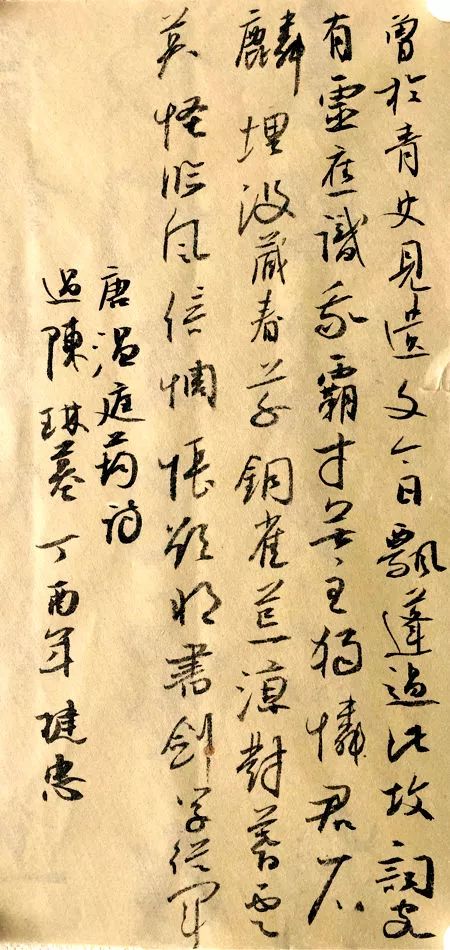 曾於青史見遺文今日飄蓬過此坟詞客
有靈應識我霸才無主獨憐君石
麟埋沒藏春草銅雀荒涼對暮雲
莫怪临风倍惆悵欲將書劍學從軍
唐溫庭筠詩
過陳琳墓 丁酉年 忠